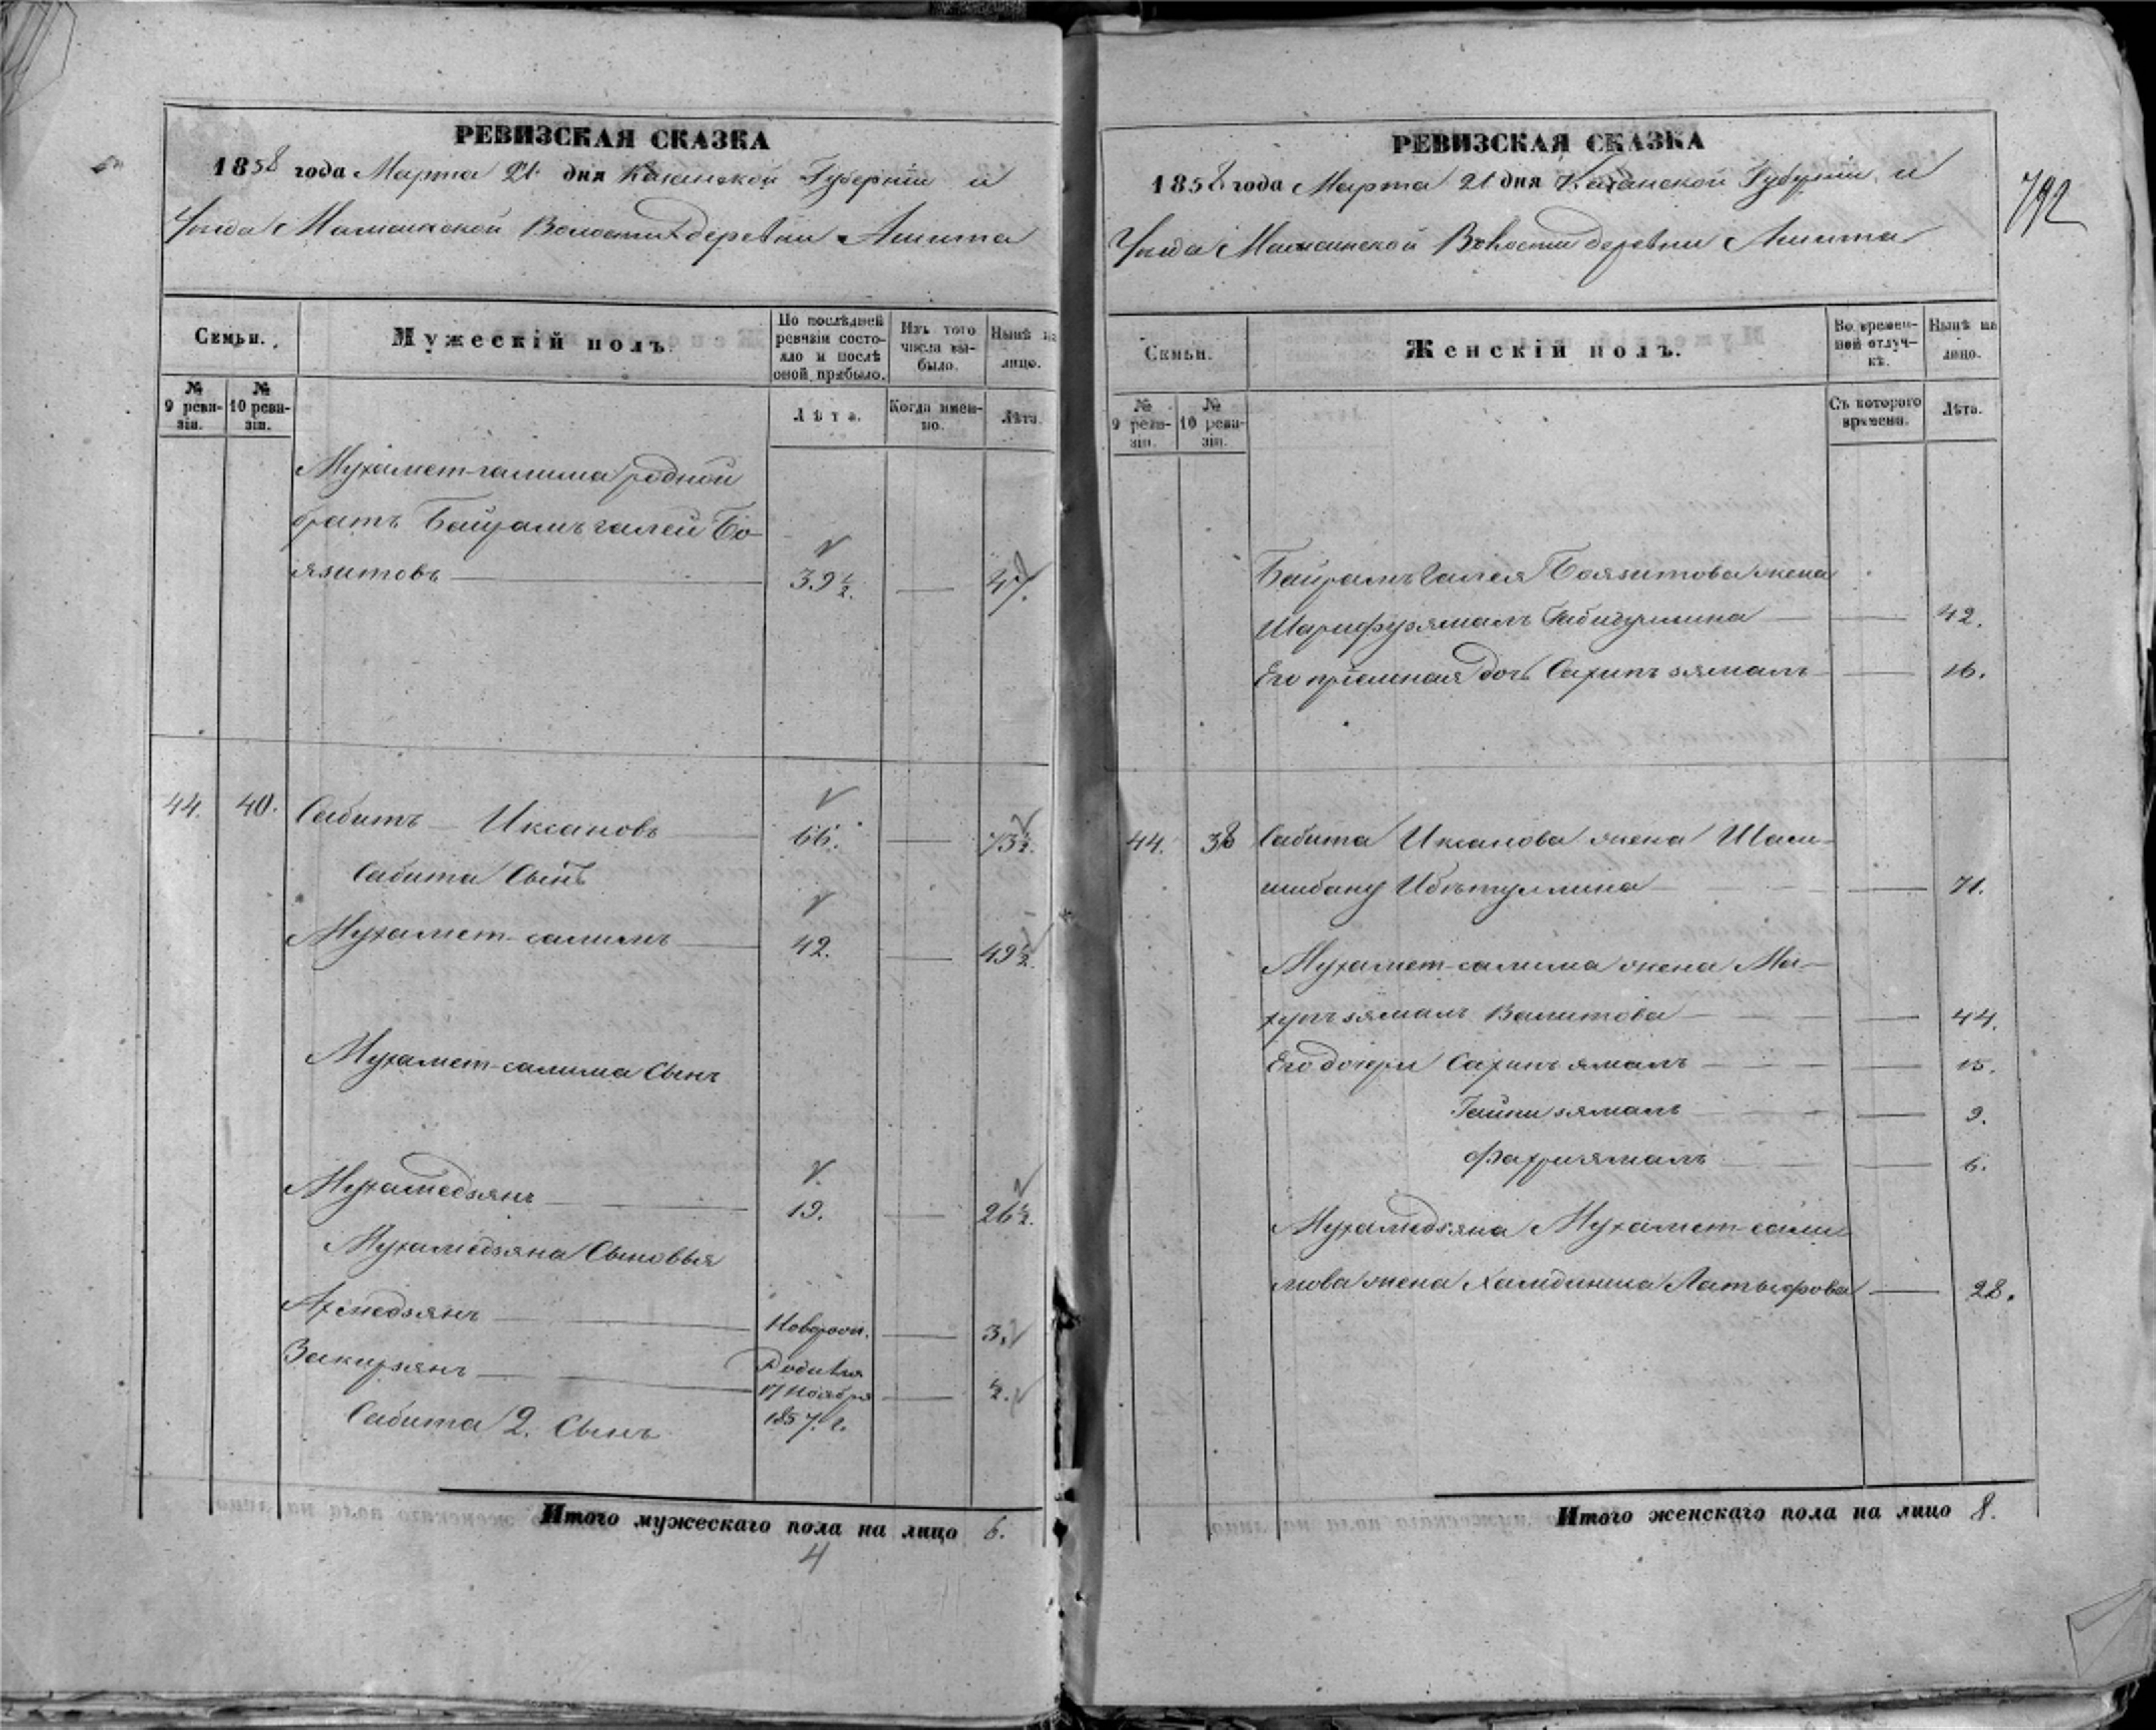 РЕВИЗСКАЯ СКАЗКА
1858 года Марта 21 дня Казанской Губерніи и
Уѣзда Мамсинской Волости деревни Ашита
Семьи.
Мужескій полъ.
По послѣдней ревизіи состояло и послѣ оной прибыло.
Изъ того числа выбыло.
Нынѣ на лицо.
№ 9 ревизіи.
№ 10 ревизіи.
Лѣта.
Когда именно.
Лѣта.
Мухамет-галима родной
братъ Байрамъ галей Бо-
язитовъ 39½. 47.
44. 40. Сабитъ Иксановъ 66. 73½.
Сабита Сынъ
Мухамет-салимъ 42. 49½.
Мухамет-салима Сынъ
Мухамедзянъ 19. 26½.
Мухамедзяна Сыновья
Ахмедзянъ Новорож. 3.
Закирзянъ Родился 17 Ноября 1857. г. ½.
Сабита 2. Сынъ
Итого мужескаго пола на лицо 6.
4
РЕВИЗСКАЯ СКАЗКА
1858 года Марта 21 дня Казанской Губерніи и
Уѣзда Мамсинской Волости деревни Ашита
792
Семьи.
Женскій полъ.
Во временной отлучкѣ.
Нынѣ на лицо.
№ 9 ревизіи.
№ 10 ревизіи.
Съ котораго времени.
Лѣта.
Байрамъ Галея Боязитова жена
Шарифузямалъ Габидуллина 42.
Его пріемная дочь Сахипъ зямалъ 16.
44. 38 Сабита Иксанова жена Шам-
шибану Ибѣтуллина 71.
Мухамет-салима жена Ма-
хупъзямалъ Валитова 44.
Его дочери Сахипъ ямалъ 15.
Гайни зямалъ 9.
Фахриямалъ 6.
Мухамедзяна Мухамет-сали
мова жена Хамдиниса Латыфова 28.
Итого женскаго пола на лицо 8.